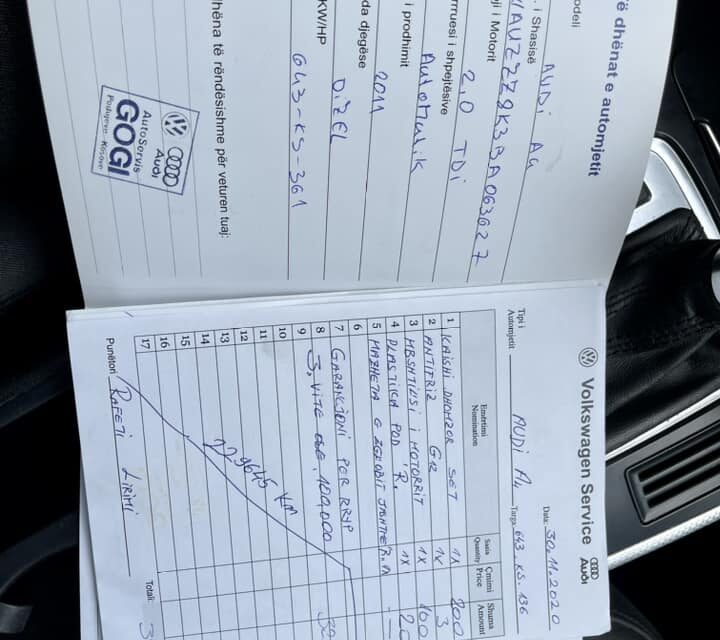 ë dhënat e automjetit
odeli AUDI A4
. i Shasisë
AUZZZ8K3BA063627
ji i Motorit 2.0 TDi
rruesi i shpejtësive
Automatik
i prodhimit
2011
da djegëse DiZEL
KW/HP 643-KS-361
hëna të rëndësishme për veturen tuaj:
Audi
AutoServis
GOGI
Podujeve - Kosove
Volkswagen Service
Audi
Data: 30.11.2020
Tipi i
Automjetit AUDI A4 Targa 643.KS.136
Emërtimi
Nomination
Sasia
Quantity
Çmimi
Price
Shuma
Amount
1 KAISHI DHOMZOR SET 1X 200
2 ANTIFRIZ G12 1X 3
3 MBSHTIUSI I MOTORRIT 1X 100
4 PLASTIIKA POD R. 1X 20
5 MAZHETA E ZGLOBIT
6
7 GARAKSIONI PER RRYP
8 3, VITE OSE 100,000
9
10
11
12
13
14
15
16
17
229645 KM
Totali: 3
Punëtori RAFETI LIRIMI